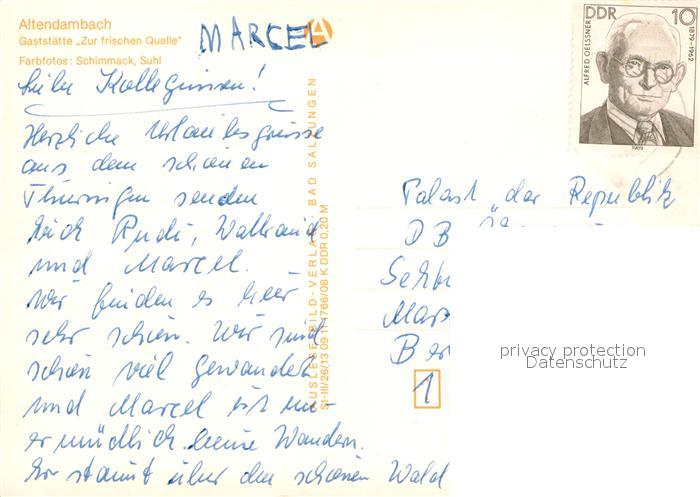 Altendambach
Gaststätte „Zur frischen Quelle"
Farbfotos: Schimmack, Suhl
MARCEL
A
Liebe Kolleginnen!
Herzliche Urlaubsgrüsse
aus dem schönen
Thüringen senden
Euch Rudi, Waltraud
und Marcel.
Wir finden es hier
sehr schön. Wir sind
schon viel gewandert
und Marcel ist un-
ermüdlich beim Wandern.
Er staunt über den schönen Wald
AUSLESE-BILD-VERLAG · BAD SALZUNGEN
S1-III/26/13 09 11 4766/08 K DDR 0,20 M
DDR 10
ALFRED OELSSNER
1879-1962
1989
Palast „der Republik
DB
Sekt
Mar
Ber
1
privacy protection
Datenschutz